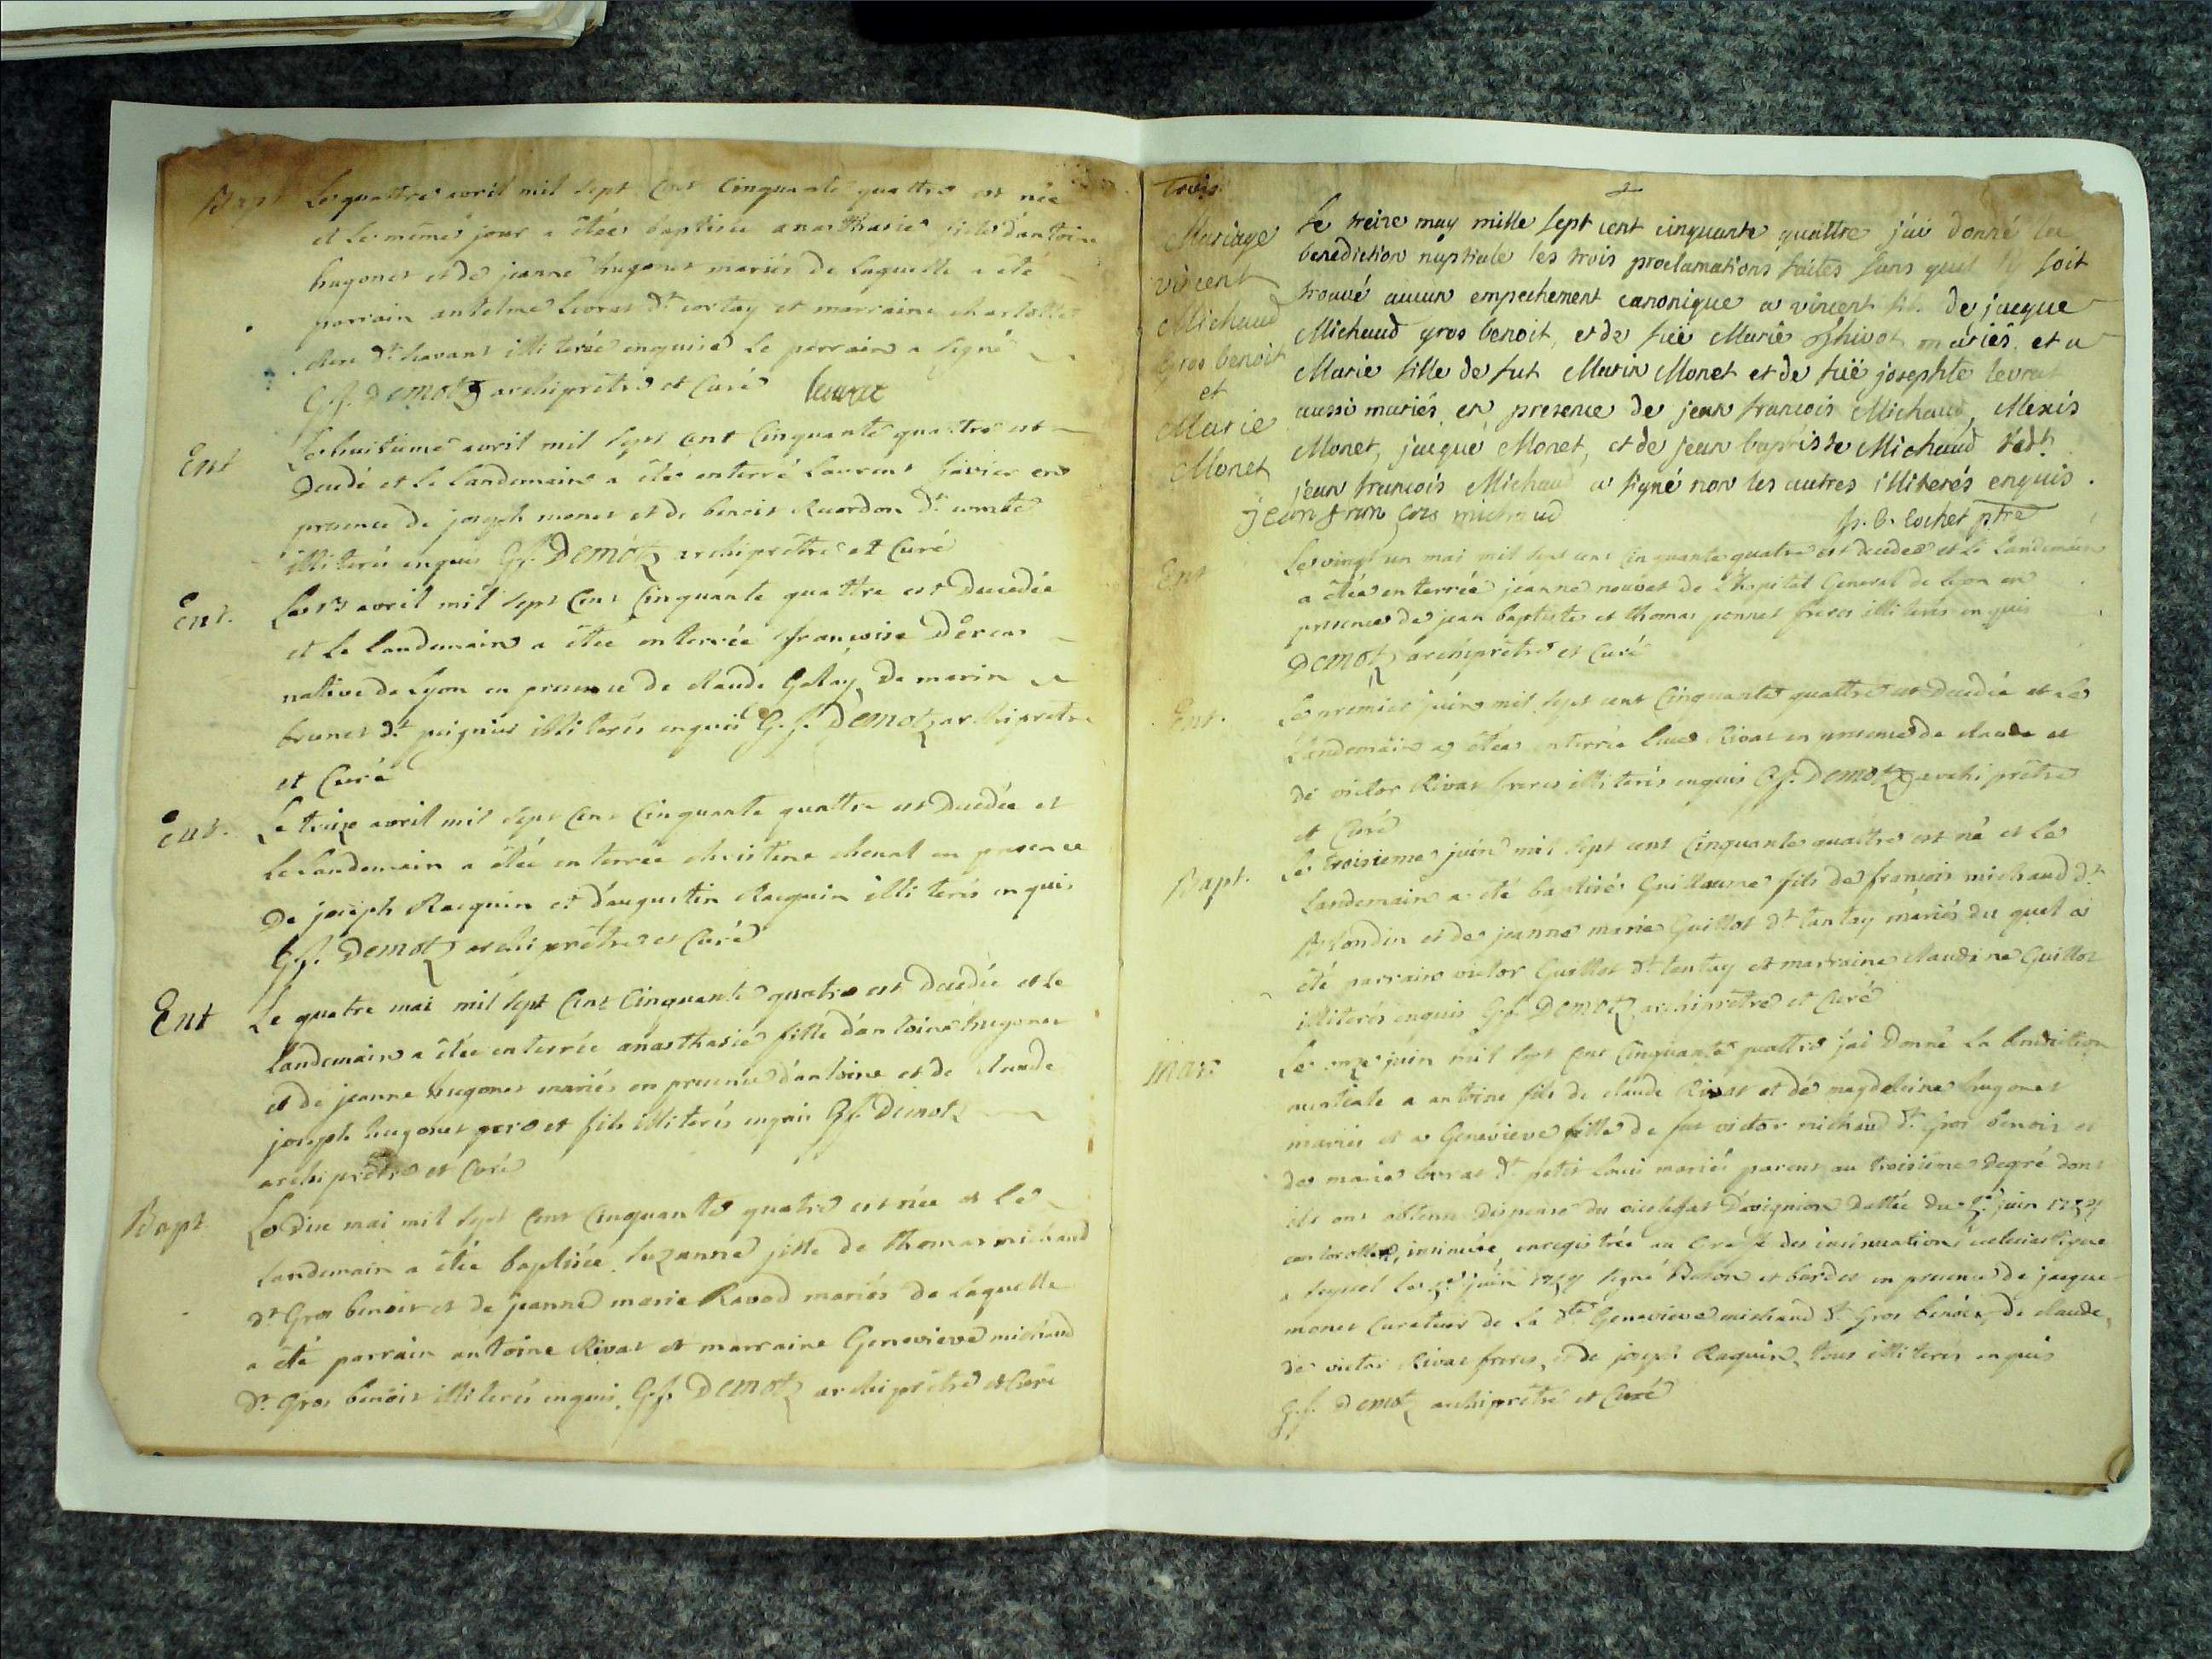 Bapt Le quattre avril mil sept cent cinquante quattre est née
et le même jour a étée baptisée anasthasie fille d'antoine
hugonet et de jeanne hugonet mariés de laquelle a été
parrain antelme levrat dt cortay et marraine charlotte
dt havant illiterée enquise le parrain a signé
G. f. Demotz archiprêtre et Curé levrat
Ent Le huitieme avril mil sept cent cinquante quattre est
decedé et le landemain a étée enterré laurent en
presence de joseph monet et de benoit dt comte
illiterés enquis G f. Demotz archiprêtre et Curé
Ent. Le avril mil sept cent cinquante quattre est decedée
et le landemain a étée enterrée françoise
native de lyon en presence de claude Golay de marin
brunet dt illiterés enquis G. f. Demotz archiprêtre
et Curé
Ent. Le treize avril mil sept cent cinquante quattre est decedée et
le landemain a étée enterrée christine en presence
de joseph Raequin et d'augustin Raequin illiterés enquis
G f. Demotz archiprêtre et Curé
Ent Le quatre mai mil sept cent cinquante quatre est decedée et le
landemain a étée enterrée anasthasie fille d'antoine hugonet
et de jeanne hugonet mariés en presence d'antoine et de claude
joseph hugonet pere et fils illiterés enquis G f. Demotz
archiprêtre et Curé
Bapt. Le dix mai mil sept cent cinquante quatre est née et le
landemain a étée baptisée suzanne fille de thomas michaud
dt Gros benoit et de jeanne marie Ravod mariés de laquelle
a été parrain antoine Rivat et marraine Genevieve michaud
dt Gros benoit illiterés enquis. G f. Demotz archiprêtre et Curé
trois
2
Mariage
vincent
Michaud
Gros benoit
et
Marie
Monet
Le treize may mille sept cent cinquante quattre j'ai donné la
benediction nuptiale les trois proclamations faites sans quil soit
trouvé aucun empechement canonique a vincent fils de jacque
Michaud gros benoit, et de füe Marie mariés, et a
Marie fille de fut Marin Monet et de füe josephte levrat
aussi mariés en presence de jean francois Michaud, Alexis
Monet, jacque Monet, et de jean baptiste Michaud
jean francois Michaud a signé non les autres illiterés enquis.
jean fran cois michaud p. b. cochet ptre
Ent Le vingt un mai mil sept cent cinquante quatre est decedée et le landemain
a étée enterrée jeanne de l'hopital General de lyon en
presence de jean baptiste et thomas freres illiterés enquis
Demotz archiprêtre et Curé
Ent. Le premier juin mil sept cent cinquante quattre est decedée et le
landemain a étée enterrée luce Rivat en presence de claude et
de victor Rivat freres illiterés enquis G f. Demotz archiprêtre
et Curé
Bapt. Le troisieme juin mil sept cent cinquante quattre est né et le
landemain a été baptisé Guillaume fils de francois michaud dt
blondin et de jeanne marie Guillot dt tantay mariés du quel a
été parrain victor Guillot dt tantay et marraine claudine Guillot
illiterés enquis G f. Demotz archiprêtre et Curé
Mar: Le onze juin mil sept cent cinquante quattre jai donné la benediction
nuptiale a antoine fils de claude Rivat et de magdeleine hugonet
mariés et a Genevieve fille de fut victor michaud dt Gros benoit et
de marie levrat dt petit loui mariés parent au troisieme degré dont
ils ont obtenu dispense du vicelegat davignion dattée du juin 1754
controllée, insinuée, enregistrée au Greffe des insinuations eclesiastique
a le juin 1754 signé et bardet en presence de jacque
monet curateur de la dte Genevieve michaud dt Gros benoit, de claude,
de victor Rivat freres, et de joseph Raquin, tous illiterés enquis
G. f. Demotz archiprêtre et Curé